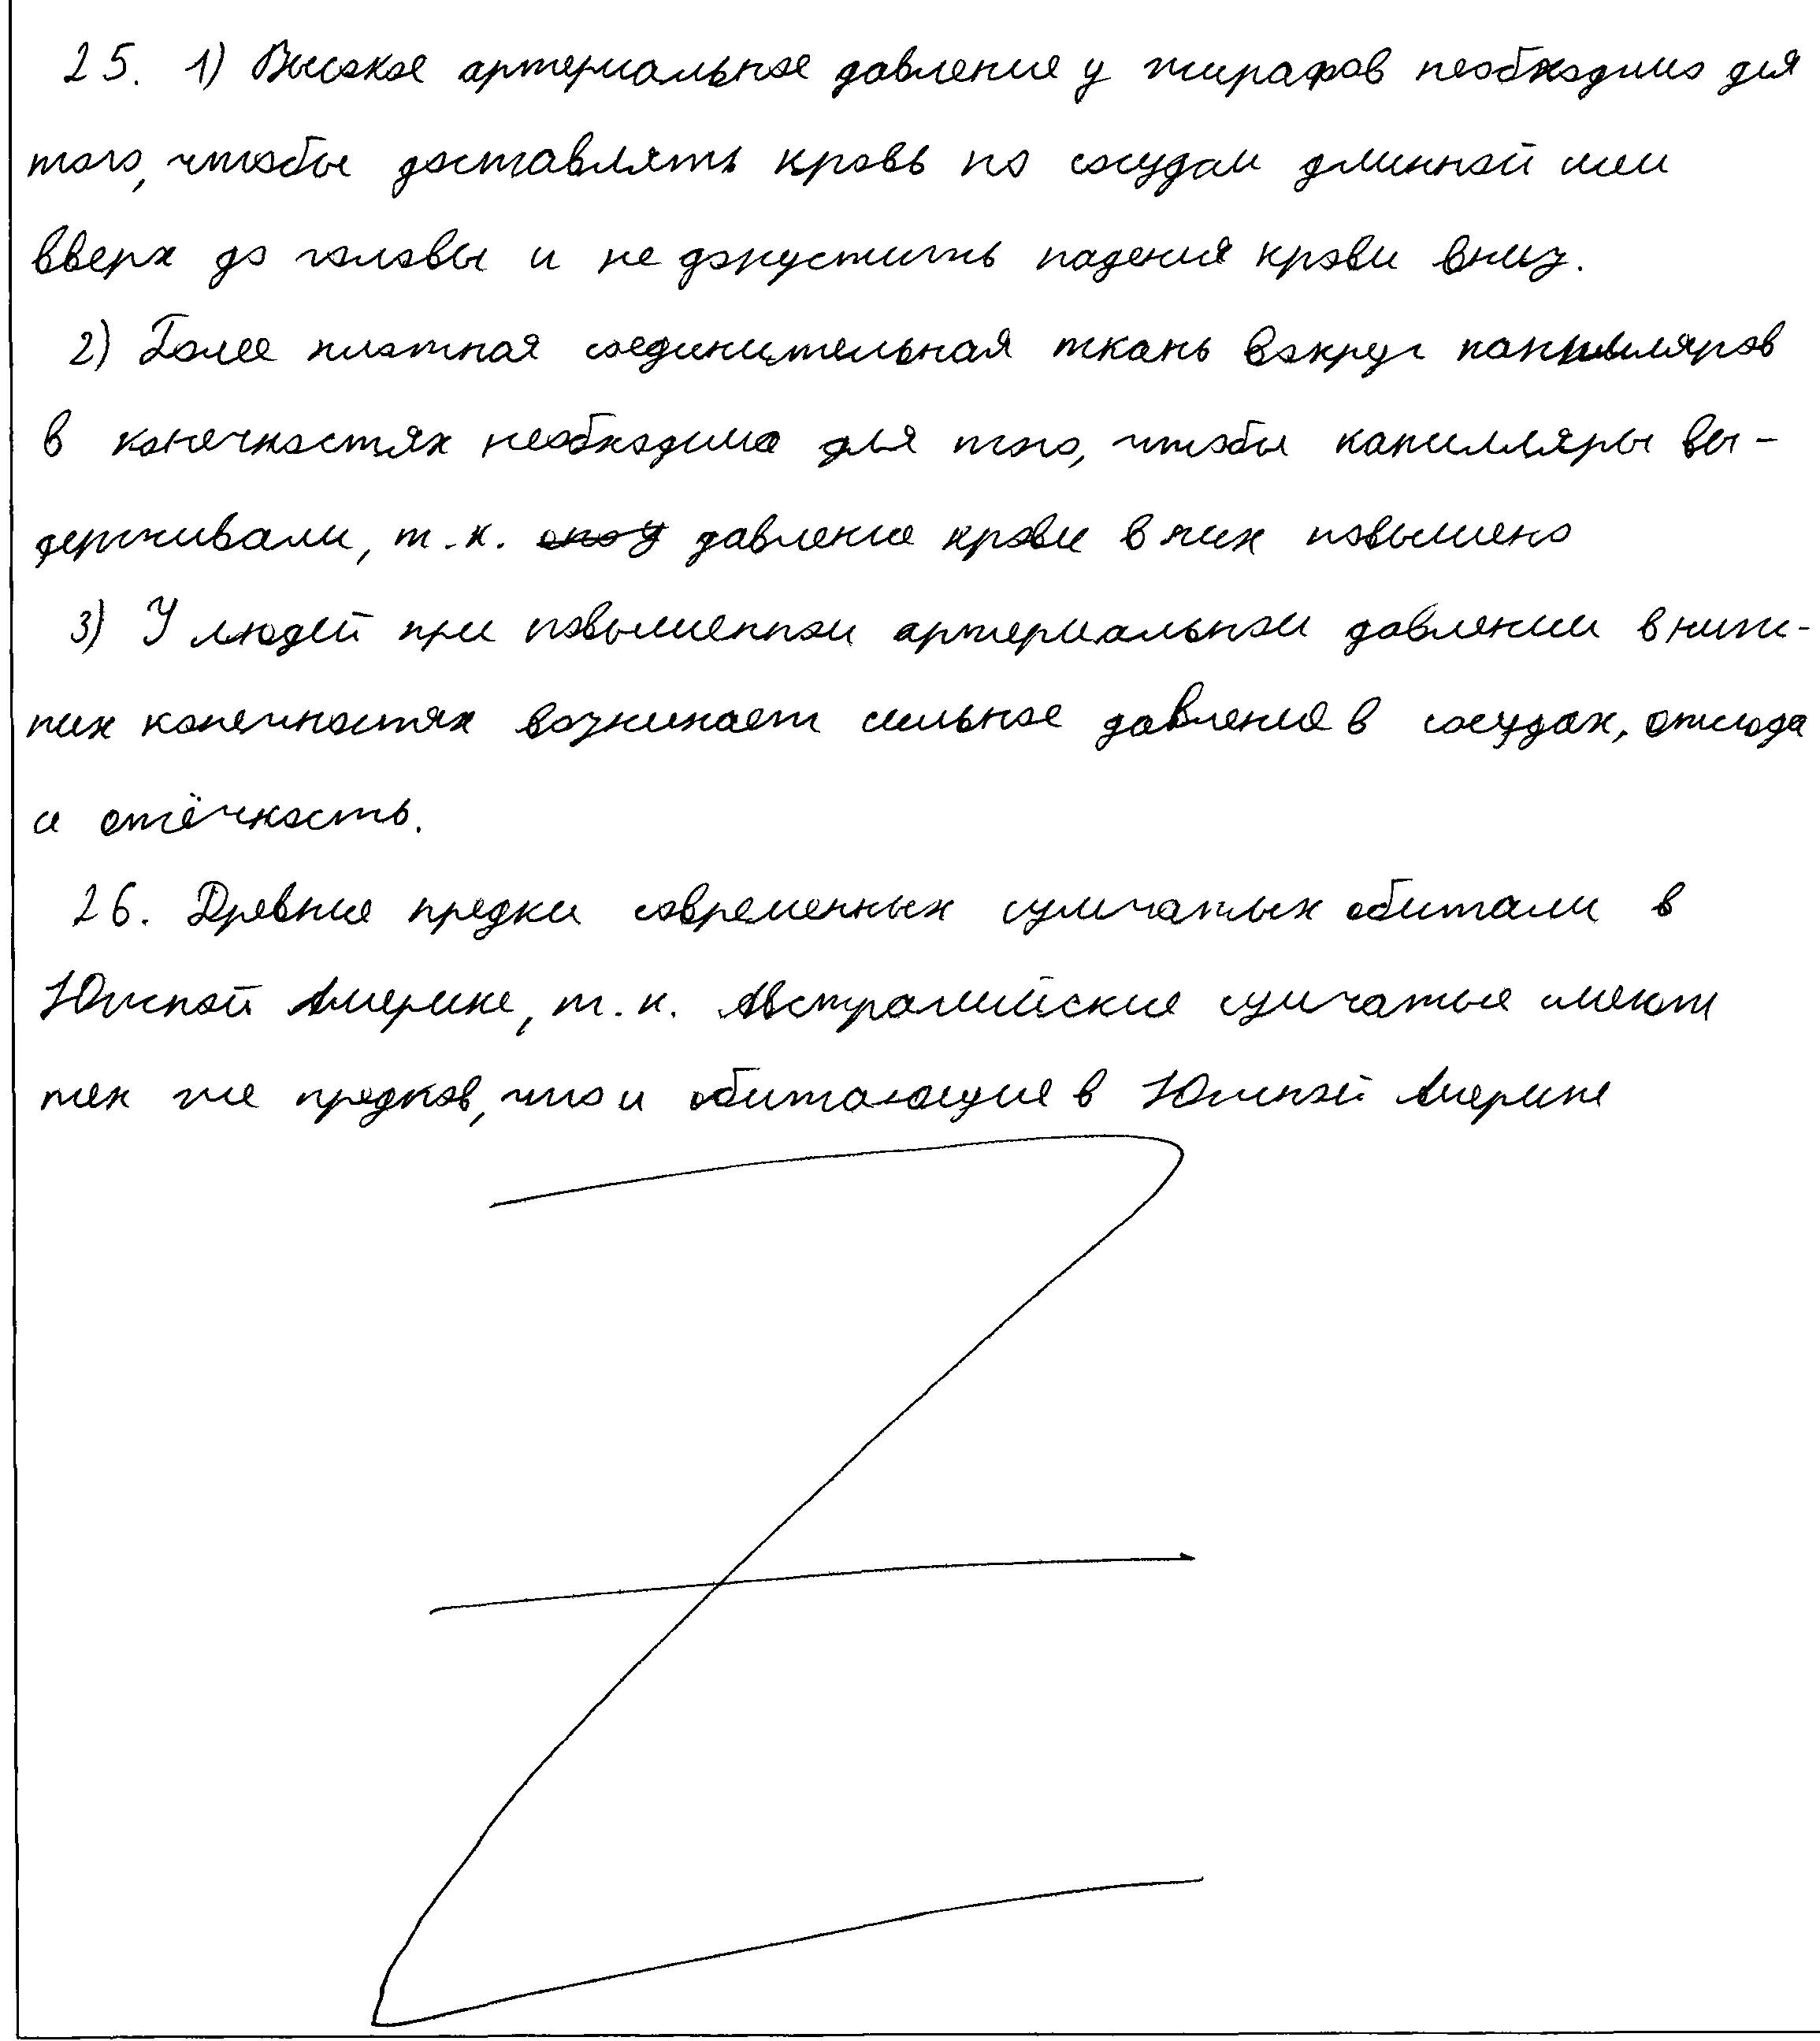 25. 1) Высокое артериальное давление у жирафов необходимо для
того, чтобы доставлять кровь по сосудам длинной шеи
вверх до головы и не допустить падения крови вниз.
2) Более плотная соединительная ткань вокруг капилляров
в конечностях необходима для того, чтобы капилляры вы-
держивали, т.к. давление крови в них повышено
3) У людей при повышенном артериальном давлении в ниж-
них конечностях возникает сильное давление в сосудах, отсюда
и отёчность.
26. Древние предки современных сумчатых обитали в
Южной Америке, т.к. Австралийские сумчатые имеют
тех же предков, что и обитающие в Южной Америке